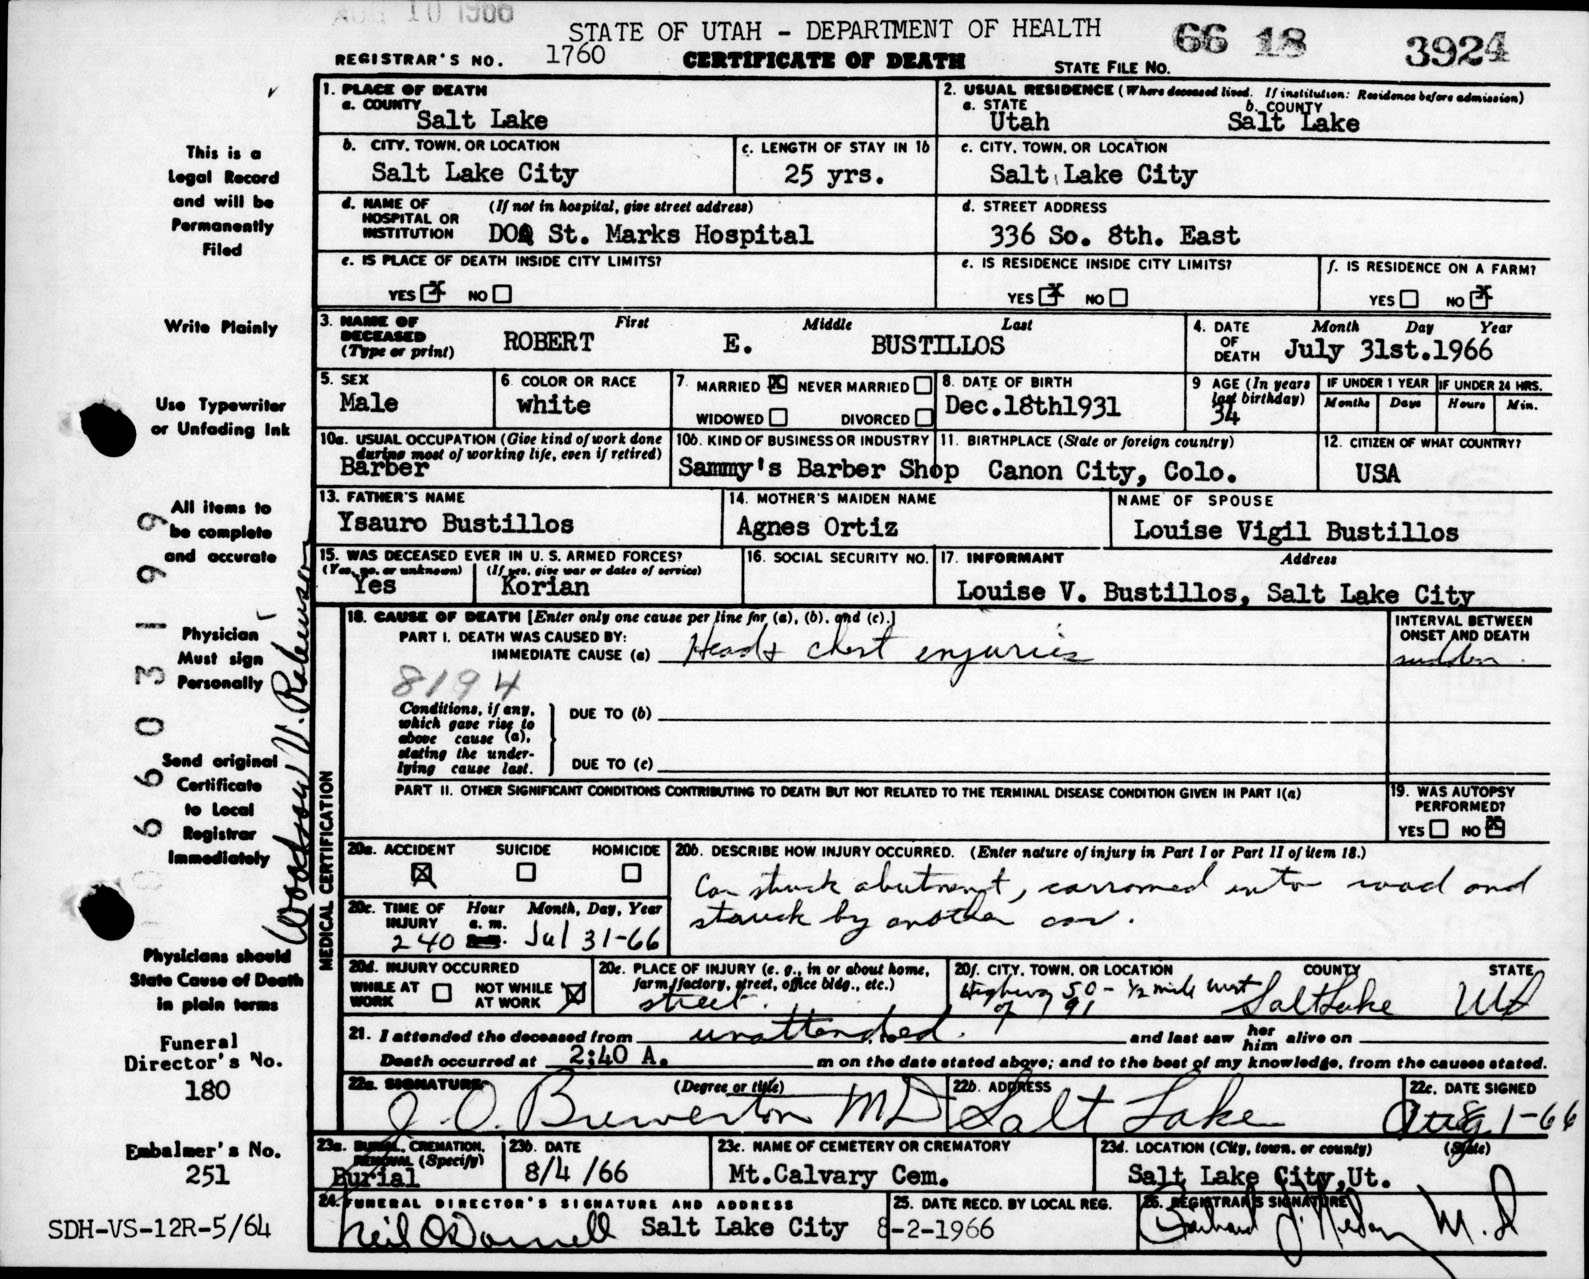 AUG 10 1966
STATE OF UTAH - DEPARTMENT OF HEALTH
66 18 3924
REGISTRAR'S NO. 1760 CERTIFICATE OF DEATH STATE FILE NO.
1. PLACE OF DEATH
a. COUNTY
Salt Lake
2. USUAL RESIDENCE (Where deceased lived. If institution: Residence before admission)
a. STATE b. COUNTY
Utah Salt Lake
b. CITY, TOWN, OR LOCATION
Salt Lake City
c. LENGTH OF STAY IN 1b
25 yrs.
c. CITY, TOWN, OR LOCATION
Salt Lake City
d. NAME OF HOSPITAL OR INSTITUTION (If not in hospital, give street address)
DOA St. Marks Hospital
d. STREET ADDRESS
336 So. 8th. East
e. IS PLACE OF DEATH INSIDE CITY LIMITS?
YES X NO
e. IS RESIDENCE INSIDE CITY LIMITS?
YES X NO
f. IS RESIDENCE ON A FARM?
YES NO X
3. NAME OF DECEASED (Type or print) First Middle Last
ROBERT E. BUSTILLOS
4. DATE OF DEATH Month Day Year
July 31st.1966
5. SEX
Male
6. COLOR OR RACE
white
7. MARRIED X NEVER MARRIED
WIDOWED DIVORCED
8. DATE OF BIRTH
Dec.18th1931
9 AGE (In years last birthday)
34
IF UNDER 1 YEAR IF UNDER 24 HRS.
Months Days Hours Min.
10a. USUAL OCCUPATION (Give kind of work done during most of working life, even if retired)
Barber
10b. KIND OF BUSINESS OR INDUSTRY
Sammy's Barber Shop
11. BIRTHPLACE (State or foreign country)
Canon City, Colo.
12. CITIZEN OF WHAT COUNTRY?
USA
13. FATHER'S NAME
Ysauro Bustillos
14. MOTHER'S MAIDEN NAME
Agnes Ortiz
NAME OF SPOUSE
Louise Vigil Bustillos
15. WAS DECEASED EVER IN U. S. ARMED FORCES?
(Yes, no, or unknown) (If yes, give war or dates of service)
Yes Korian
16. SOCIAL SECURITY NO.
17. INFORMANT Address
Louise V. Bustillos, Salt Lake City
18. CAUSE OF DEATH [Enter only one cause per line for (a), (b), and (c).]
PART I. DEATH WAS CAUSED BY:
IMMEDIATE CAUSE (a) Head & chest enjuries
INTERVAL BETWEEN ONSET AND DEATH
sudden
8194
Conditions, if any, which gave rise to above cause (a), stating the underlying cause last.
DUE TO (b)
DUE TO (c)
PART II. OTHER SIGNIFICANT CONDITIONS CONTRIBUTING TO DEATH BUT NOT RELATED TO THE TERMINAL DISEASE CONDITION GIVEN IN PART I(a)
19. WAS AUTOPSY PERFORMED?
YES NO X
20a. ACCIDENT X SUICIDE HOMICIDE
20b. DESCRIBE HOW INJURY OCCURRED. (Enter nature of injury in Part I or Part II of item 18.)
Car struck abutment, carromed into road and
struck by another car.
20c. TIME OF INJURY Hour a. m. Month, Day, Year
2 40 Jul 31-66
20d. INJURY OCCURRED
WHILE AT WORK NOT WHILE AT WORK X
20e. PLACE OF INJURY (e. g., in or about home, farm, factory, street, office bldg., etc.)
street
20f. CITY, TOWN, OR LOCATION COUNTY STATE
Highway 50 - 1/2 mile west of 91 Salt Lake Ut
21. I attended the deceased from unattended. to and last saw her him alive on
Death occurred at 2:40 A. m on the date stated above; and to the best of my knowledge, from the causes stated.
22a. SIGNATURE (Degree or title)
J. O. Brewerton MD
22b. ADDRESS
Salt Lake
22c. DATE SIGNED
Aug 1-66
23a. BURIAL, CREMATION, REMOVAL (Specify)
Burial
23b. DATE
8/4 /66
23c. NAME OF CEMETERY OR CREMATORY
Mt.Calvary Cem.
23d. LOCATION (City, town, or county) (State)
Salt Lake City,Ut.
24. FUNERAL DIRECTOR'S SIGNATURE AND ADDRESS
Neil O'Donnell Salt Lake City
25. DATE RECD. BY LOCAL REG.
8-2-1966
26. REGISTRAR'S SIGNATURE
M.D
MEDICAL CERTIFICATION
This is a
Legal Record
and will be
Permanently
Filed
Write Plainly
Use Typewriter
or Unfading Ink
All items to
be complete
and accurate
Physician
Must sign
Personally
Send original
Certificate
to Local
Registrar
Immediately
Physicians should
State Cause of Death
in plain terms
Funeral
Director's No.
180
Embalmer's No.
251
SDH-VS-12R-5/64
66 03199